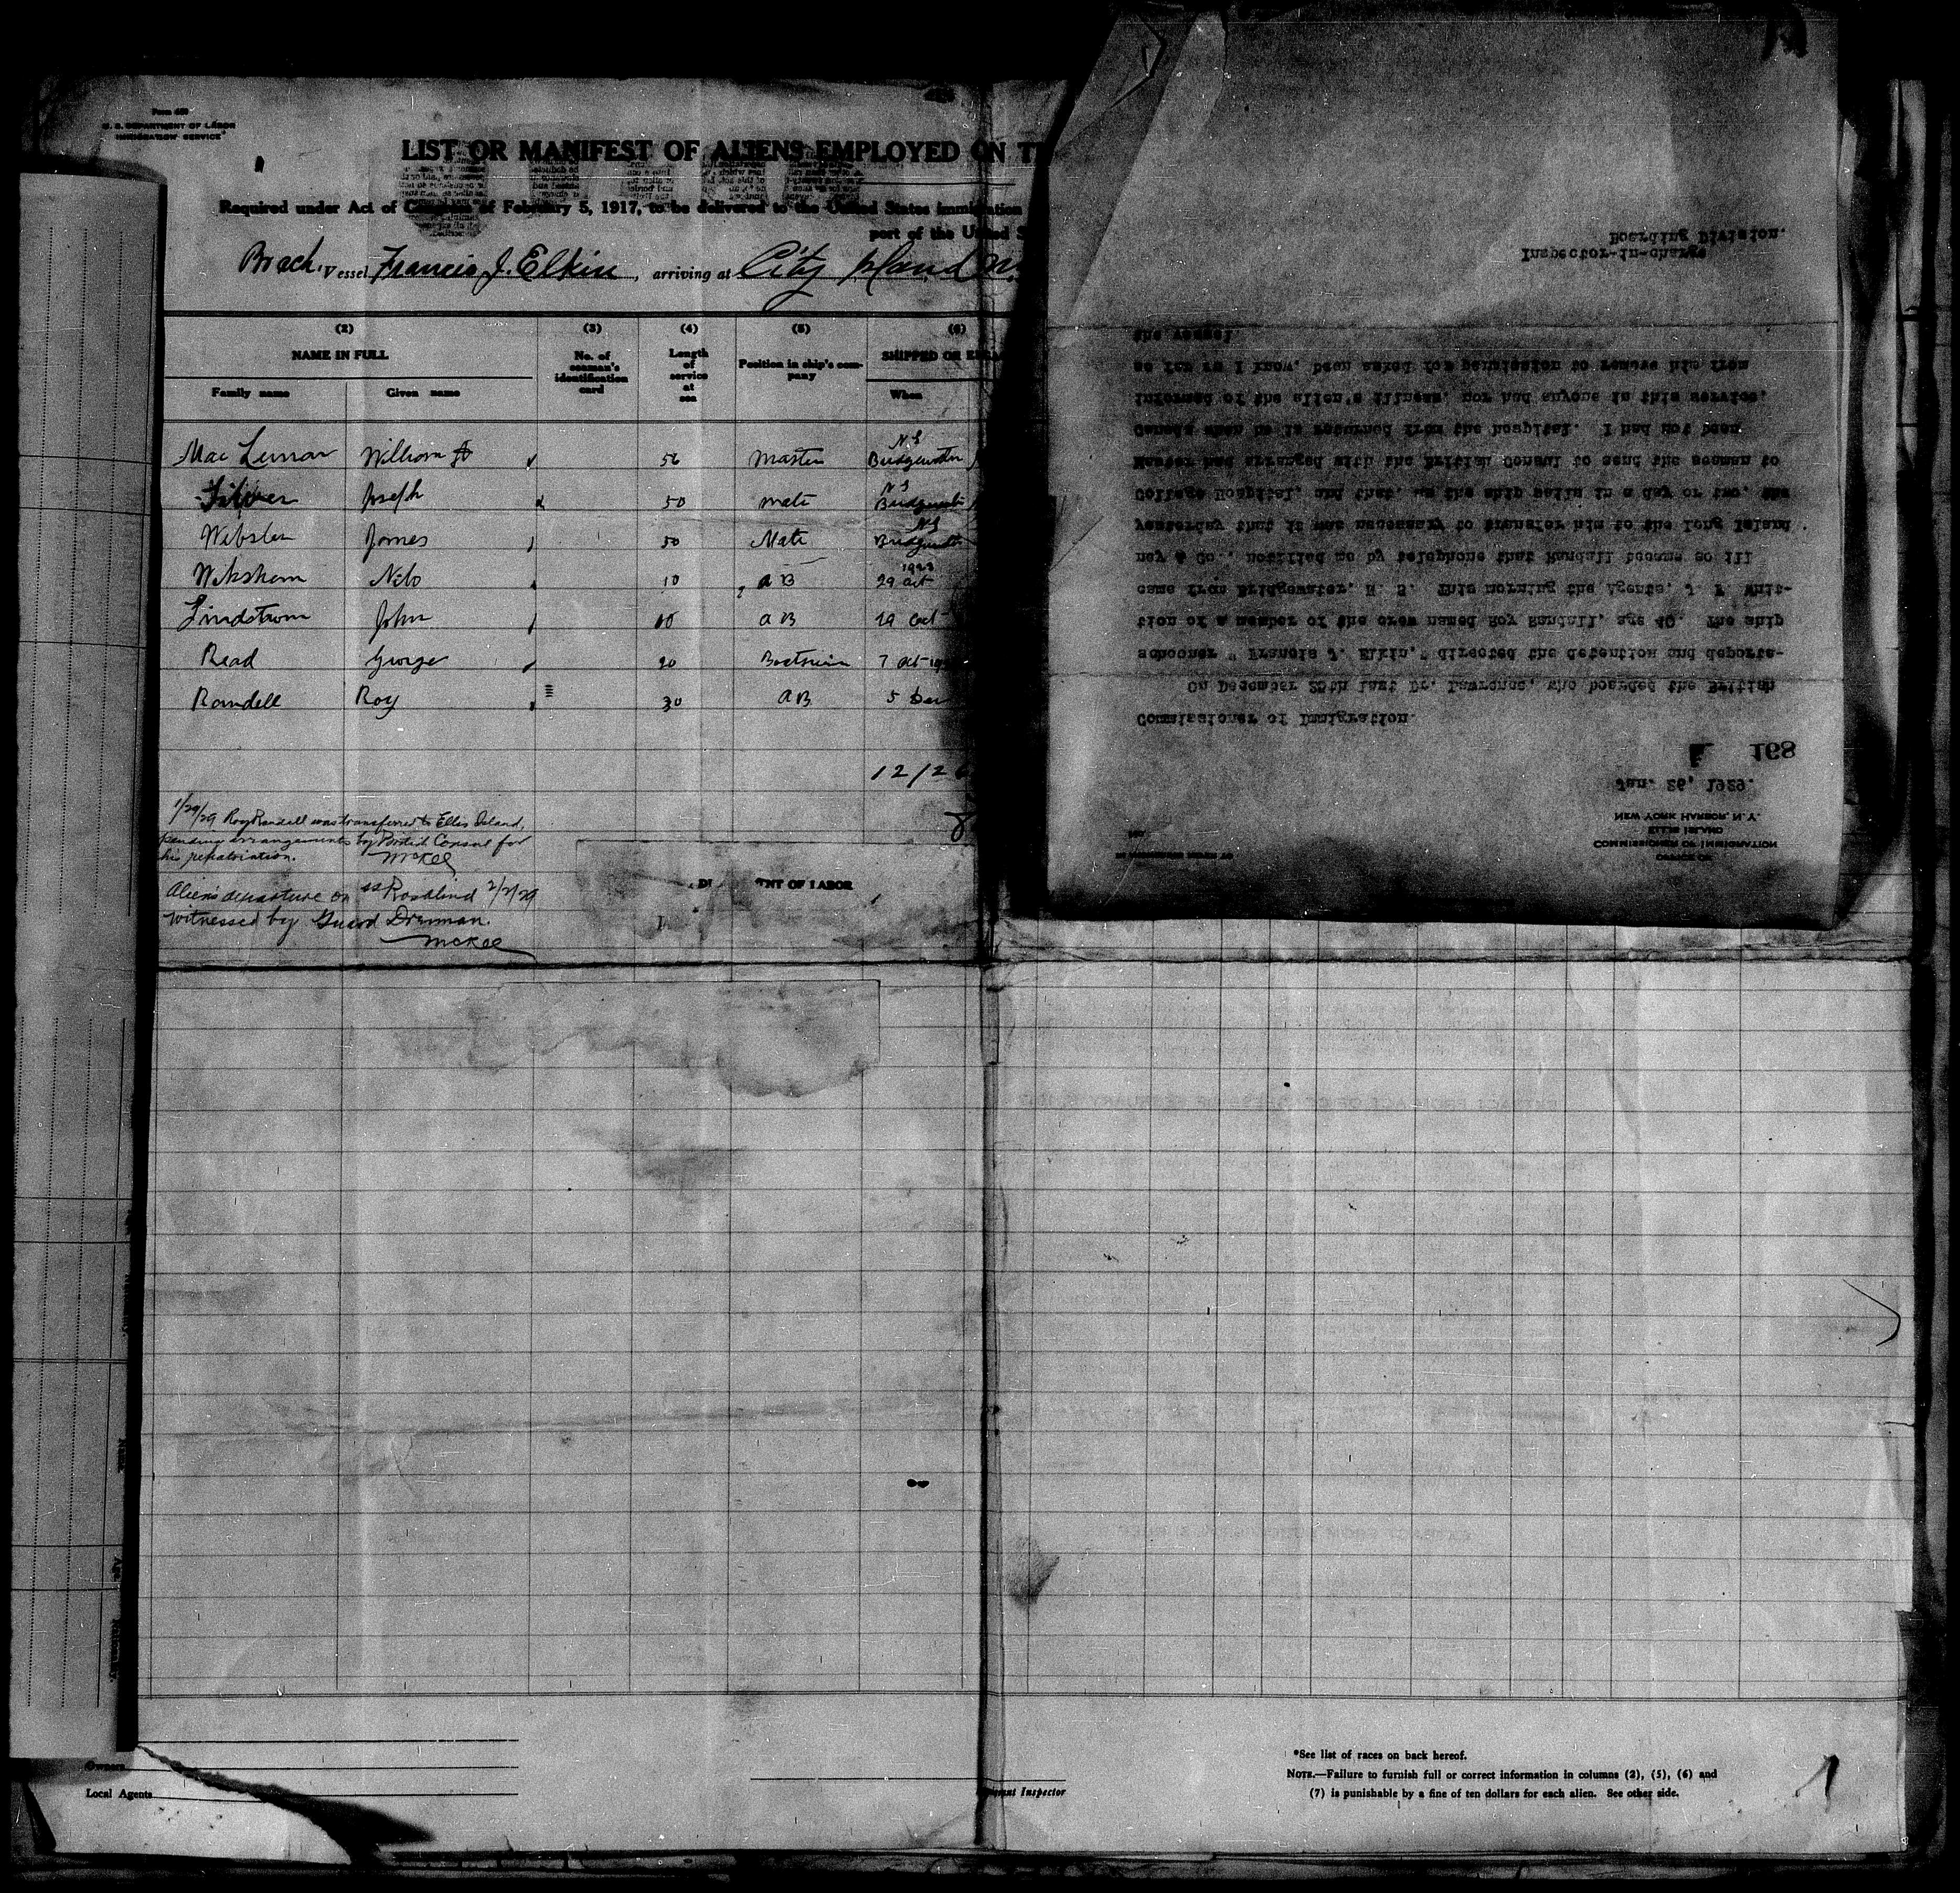 Form 680
U. S. DEPARTMENT OF LABOR
IMMIGRATION SERVICE
LIST OR MANIFEST OF ALIENS EMPLOYED ON T
Required under Act of Congress of February 5, 1917, to be delivered to the United States immigration
port of the United S
Vessel Francis J. Elkin, arriving at City Island N.
(2) (3) (4) (5) (6)
NAME IN FULL
Family name Given name
No. of seaman's identification card
Length of service at sea
Position in ship's company
SHIPPED OR
When
Mac William 56 Master Bridgewater N S
Joseph 50 mate N S
Webster James 50 Mate N S
Nils 10 A B 29 Oct
Lindstrom John 10 A B 29 Oct
Read George 20 7 Oct
Randell Roy 30 A B 5
12/26
1/29/29 Roy Randell was transferred to Ellis Island,
pending arrangements by British Consul for
his repatriation.
McKee
Alien's departure on ss Rosalind 2/2/29
witnessed by Guard Drennan.
McKee
NT OF LABOR
OFFICE OF
COMMISSIONER OF IMMIGRATION
ELLIS ISLAND
NEW YORK HARBOR, N.Y.
IN ANSWERING REFER TO
No.
Jan. 26, 1929.
168
Commissioner of Immigration.
On December 25th last Dr. Lawrence, who boarded the British
schooner "Francis J. Elkin," directed the detention and deporta-
tion of a member of the crew named Roy Randall, age 40. The ship
came from Bridgewater, N. S. This morning the Agents, J. F. Whit-
ney & Co., notified me by telephone that Randall became so ill
yesterday that it was necessary to transfer him to the Long Island
College Hospital, and that, as the ship sails in a day or two, the
Master had arranged with the British Consul to send the seaman to
Canada when he is returned from the hospital. I had not been
informed of the alien's illness, nor had anyone in this service,
so far as I know, been asked for permission to remove him from
the vessel.
Inspector-in-charge
Boarding Division.
Owners
Local Agents
Immigrant Inspector
*See list of races on back hereof.
NOTE.—Failure to furnish full or correct information in columns (2), (5), (6) and
(7) is punishable by a fine of ten dollars for each alien. See other side.